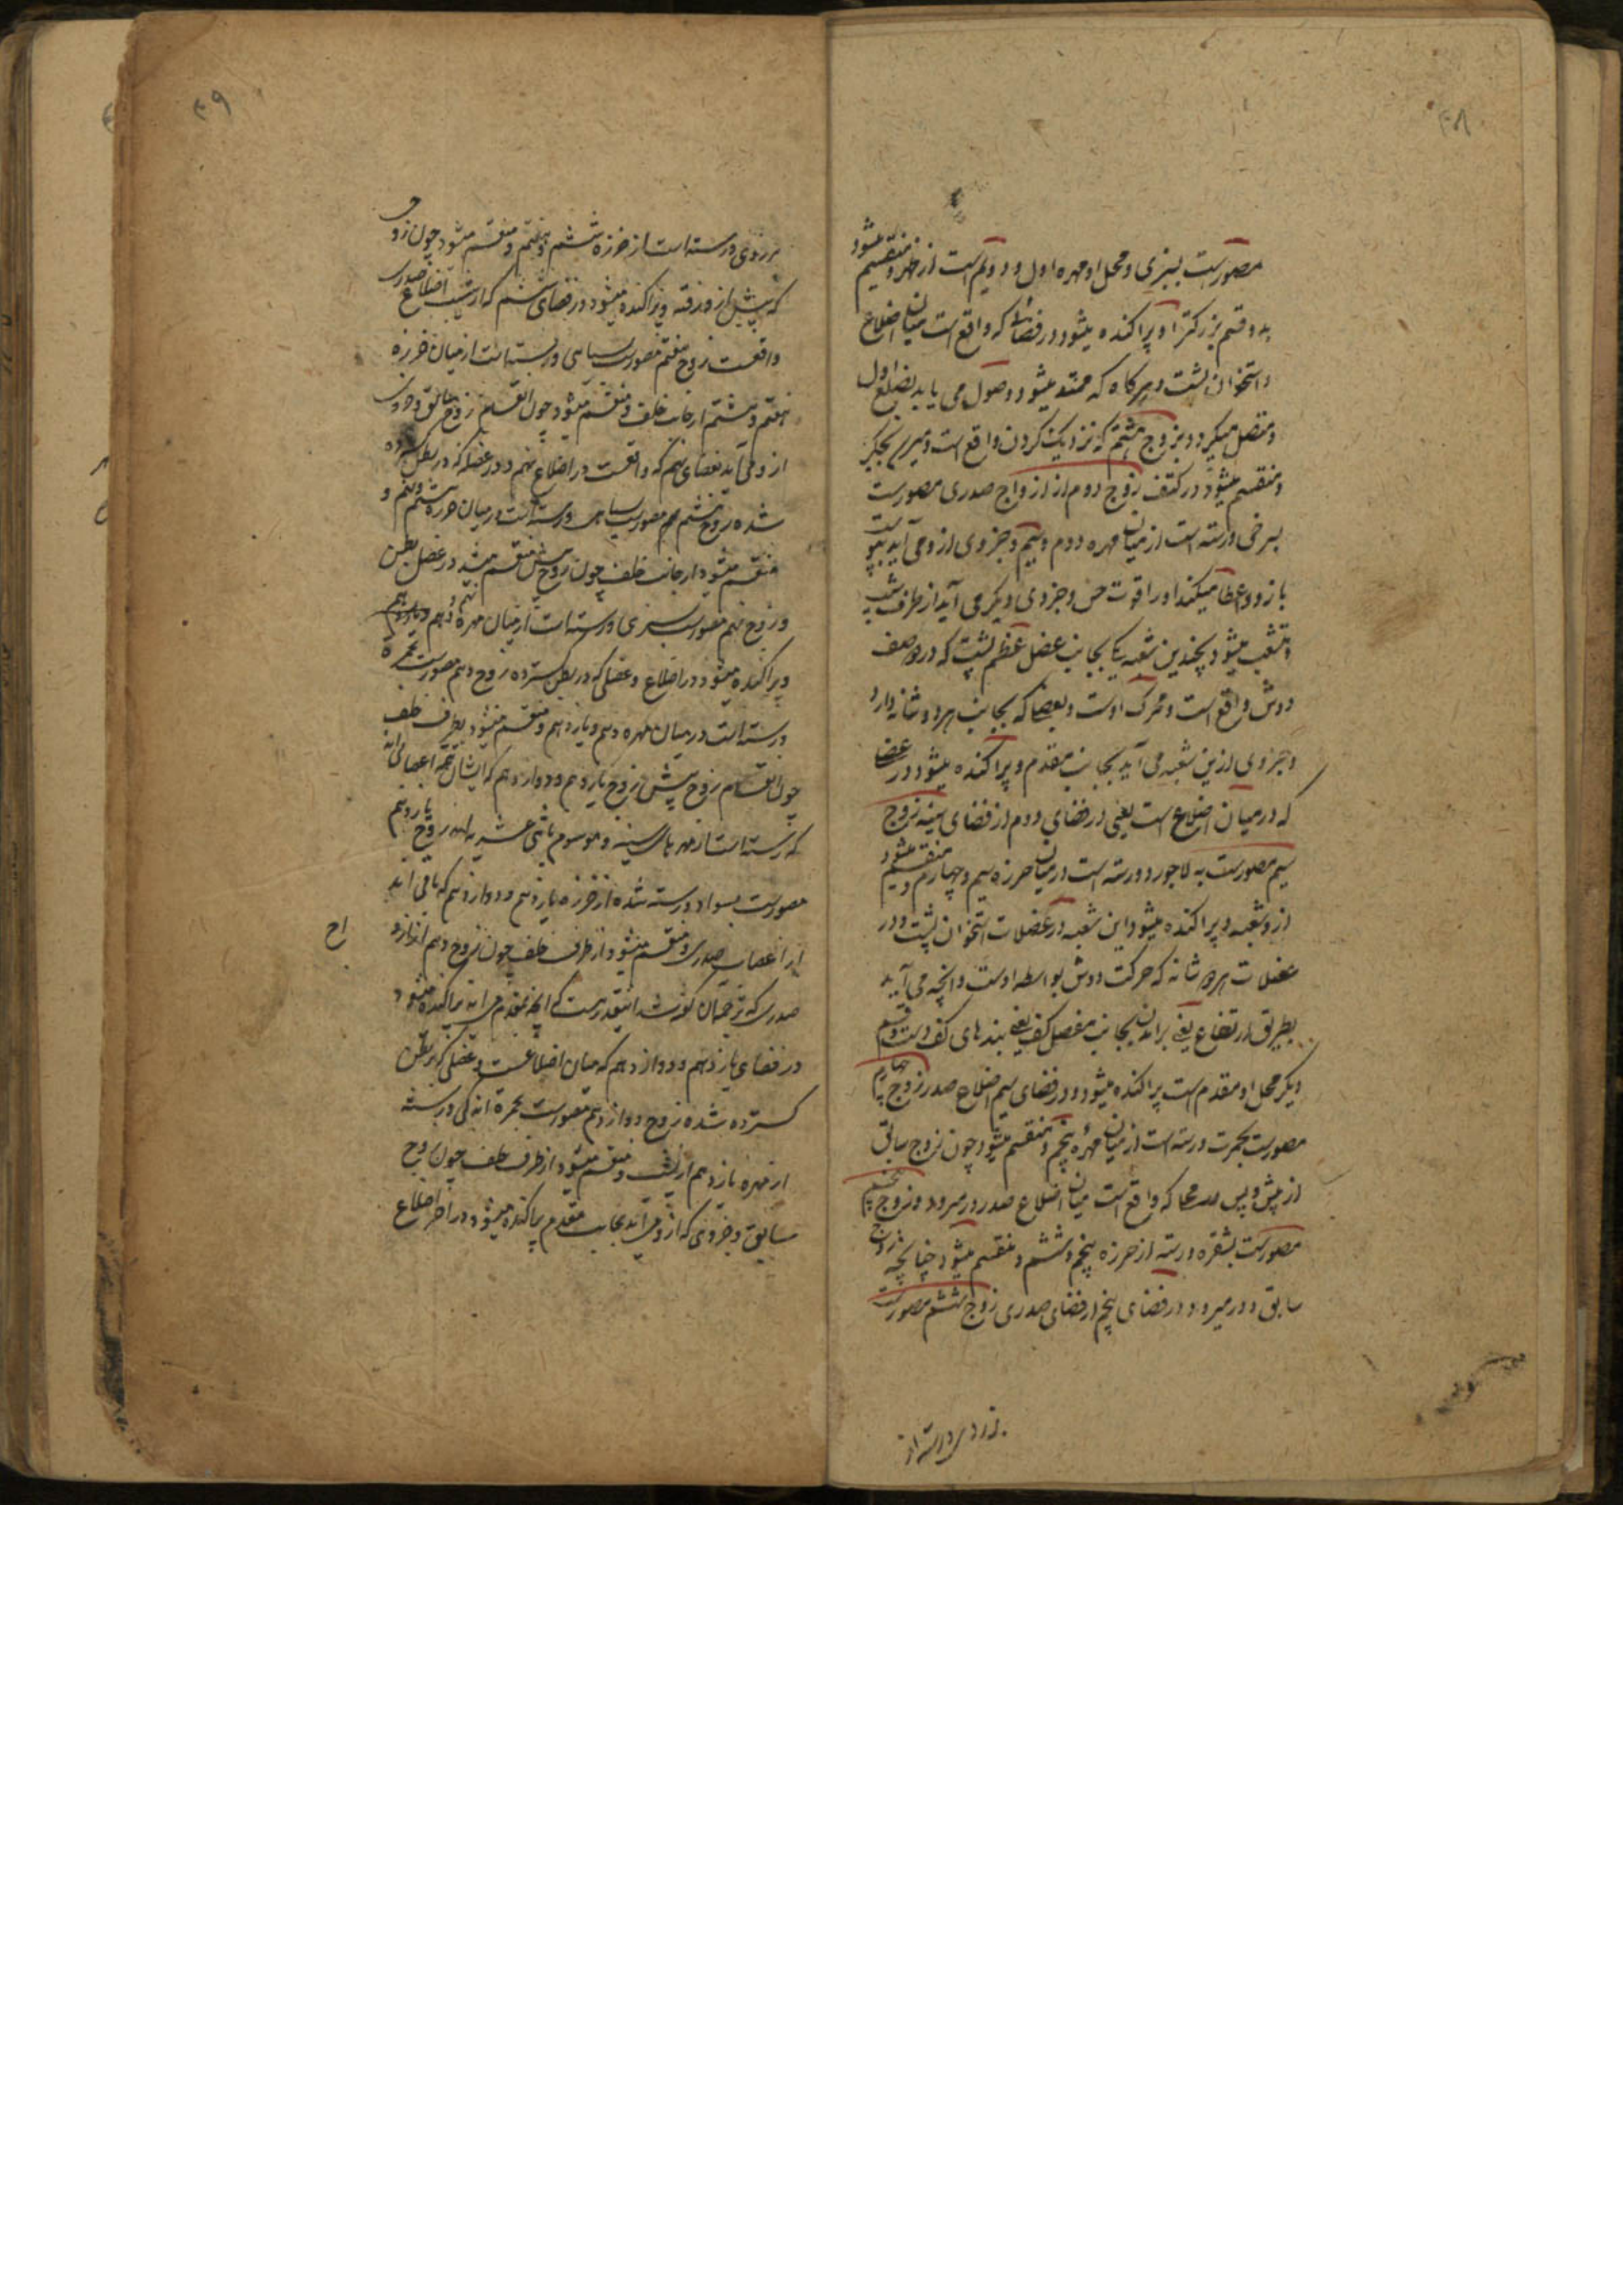 ۴۸
مصورست بسبزی و محل او مهره اول و دویم است از ظهر و منقسم میشود
بدو قسم بزرکتر او پراکنده میشود در فضائی که واقع است میان اضلاع
و استخوان پشت و هرکاه که ممتد میشود و وصول می یابد بضلع اول
و متصل میکردد بزوج هشتم که نزدیک کردن واقع است و میر
و منقسم میشود در کتف زوج دوم از ازواج صدری مصورست
بسرخی و رسته است از میان مهره دوم و سیم و جزوی از و می آید بپوست
بازو و اعطا میکند او را قوت حس و جزوی دیکر می آید از طرف شیب
و متشعب میشود بچندین شعبه یکی بجانب عضل عظم پشت که در
دوش واقع است و محرک اوست و بعضی که بجانب هر دو شانه دارد
و جزوی ازین شعبه می آید بجانب مقدم و پراکنده میشود در عضلی
که در میان اضلاع است یعنی در فضای دوم از فضای سینه زوج
سیم مصورست به لاجورد و رسته است در میان خرزه سیم و چهارم و منقسم میشود
از و شعبه و پراکنده میشود این شعبه در عضلات استخوان پشت و در
عضلات هر دو شانه که حرکت دوش بواسطه اوست و انچه می آید
بطریق ارتفاع یعنی براندن بجانب مفصل کتف یعنی بندهای کتف و قسم
دیکر محل او مقدم است پراکنده میشود و در فضای سیم اضلاع صدر زوج چهارم
مصورست بحمرت و رسته است از میان مهره پنجم و منقسم میشود چون زوج سابق
از پیش و پس که واقع است میان اضلاع صدر در میرود و زوج پنجم
مصورست بشقره و رسته از خرزه پنجم و ششم و منقسم میشود چنانچه زوج
سابق و در میرود در فضای پنجم از فضای صدری زوج ششم مصورست
بزردی و رسته از
۴۹
بزردی و رسته است از خرزه ششم و هفتم و منقسم میشود چون زوج
که پیش از و رفته و پراکنده میشود در فضای ششم که از شیب اضلاع صدر
واقعست زوج هفتم مصورست بسیاهی و رسته است از میان خرزه
هفتم و هشتم از جانب خلف و منقسم میشود چون انقسام زوج سابق و جزوی
از و می آید بفضای نهم که واقعست در اضلاع نهم و در عضلی که در بطن کسترده
شده زوج هشتم مصورست بسیاهی و رسته است در میان خرزه هشتم و نهم و
منقسم میشود از جانب خلف چون زوج پیش منقسم میشود در عضل بطن
و زوج نهم مصورست بسبزی و رسته است از میان مهره نهم و دهم
و پراکنده میشود در اضلاع و عضلی که در بطن کسترده زوج دهم مصورست بحمرة
و رسته است در میان مهره دهم و یازدهم و منقسم میشود بطرف خلف
چون انقسام زوج پیش زوج یازدهم و دوازدهم که ایشان تتمه اعصابی اند
که رسته است از مهرهای سینه و موسوم باثنی عشریه اند زوج یازدهم
مصورست بسواد و رسته شده از خرزه یازدهم و دوازدهم که باقی اند
از اعصاب صدری و منقسم میشود از طرف خلف چون زوج دهم از ازو
اج
صدری که ترجمان کوشد اینقدرست که انچه بمقدم می آید پراکنده میشود
در فضای یازدهم و دوازدهم که میان اضلاعست و عضلی که بر بطن
کسترده شده زوج دوازدهم مصورست بحمرة اندکی و رسته
از مهره یازدهم از پشت و منقسم میشود از طرف خلف چون زوج
سابق و جزوی که ازو می آید بجانب مقدم پراکنده میشود در اخر اضلاع